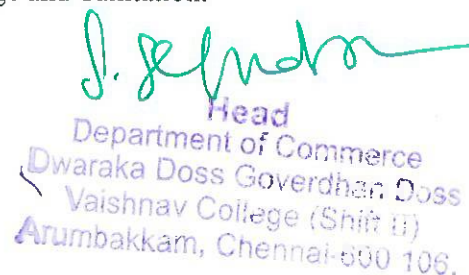 Head
Department of Commerce
Dwaraka Doss Goverdhan Doss
Vaishnav College (Shift II)
Arumbakkam, Chennai-600 106.